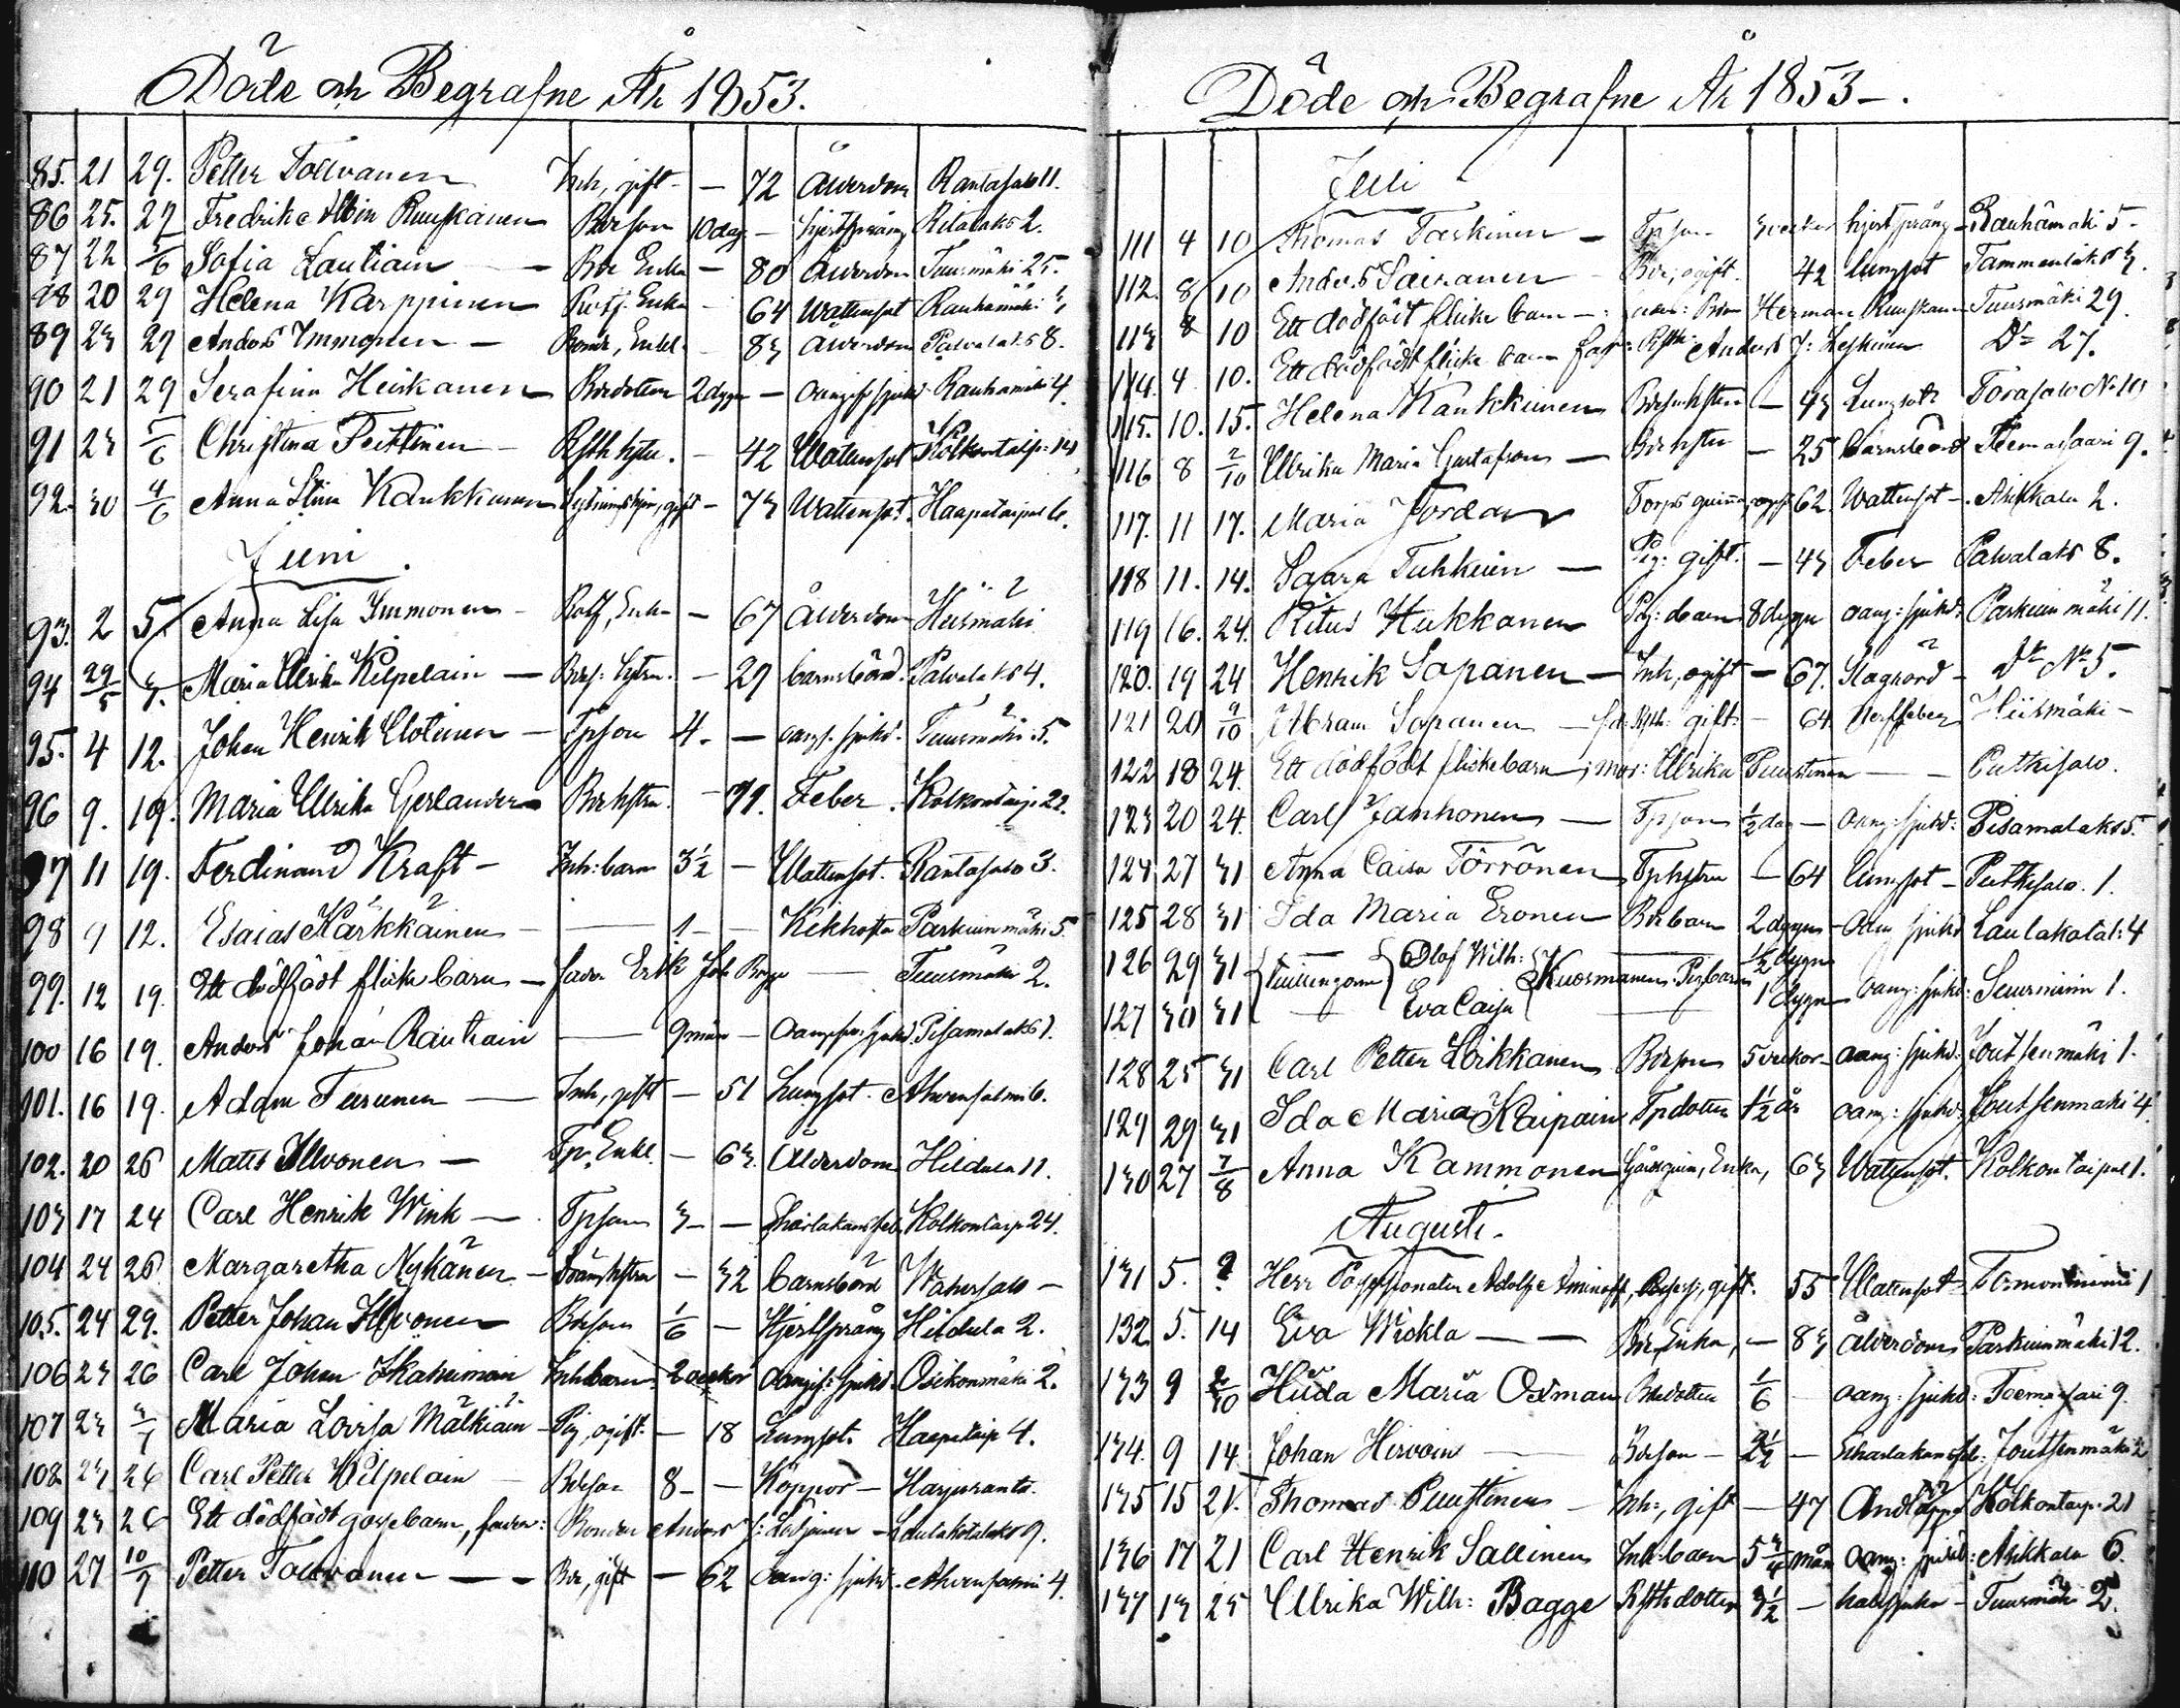 Döde och Begrafne År 1853.
85. 21 29. Petter Tolvanen Inh, gift - 72 Ålderdom Rantasalo 11.
86 25. 29 Fredrik Albin Ruuskanen Bdeson 10 dag - hjertsprång Ritalaks 2.
87 22 5/6 Sofia Lautiain - Bde Enka - 80 Ålderdom Tuusmäki 25.
88 20 29 Helena Karppinen Enka - 64 Wattensot Rauhamäki
89 23 29 Anders Immonen - Bonde, Enkl. - 83 Ålderdom Palvalaks 8.
90 21 29 Serafina Heiskanen Bdedotter 2 dygn - oangif sjukd Rauhamäki 4.
91 23 5/6 Christina Peittinen - Rsthhstru. - 42 Wattensot Kolkontaip: 14
92. 30 4/6 Anna Stina Kaukkunen gift - 73 Wattensot. Haapataipal 6.
Juni.
93. 2 5. Anna Lisa Immonen - Enka - 67 Ålderdom Hiismäki
94 29/5 5. Maria Ulrika Kilpelain - Bdes: hstru. - 29 barnsbörd. Palvalaks 4.
95. 4 12. Johan Henrik Tpson 4. - oangf. sjukd. Tuusmäki 5.
96 9. 19. Maria Ulrika Gerlander Bdehstru. - Feber. Kolkontaip 22.
97 11 19. Ferdinand Kraft - Inh: barn 3½ - Wattensot. Rantasalo 3.
98 9 12. Esaias Kärkkäinen - 1 - Kikhosta Parkuinmäki 5
99. 12 19. Ett dödfödt flicke barn - fader Erik Joh Bagge - Tuusmäki 2.
100 16 19. Anders Johan Rautiain - 9 mån - oangifn: sjukd. Pisamalaks 1.
101. 16 19. Adam Turunen - Inh, gift - 51 Lungsot. Ahvensalmi 6.
102. 20 26 Matts Ilvonen - Tp. Enkl. - 63. Ålderdom Hildula 11.
103 17 24 Carl Henrik Wink - Tpson 3 - - Skarlakansfeb. Kolkontaip 24.
104 24 26 Margaretha Nykänen - Drängshstru - 32 barnsbörd
105. 24 29. Petter Johan Ilvonen Bdeson 1/6 - Hjertsprång Hildula 2.
106 23 26 Carl Johan Ikäheimoin Inh barn 2 veckor oangif: sjukd. Osikonmäki 2.
107 23 3/7 Maria Lovisa Mälkiäin - Pig, ogift - 18 Lungsot. Haapataip 4.
108 23 26 Carl Petter Kilpelain Bdeson 8 - - Koppor - Harjuranta.
109 23 26 Ett dödfödt gossebarn, fader: Bonden Anders - Laulakatalaks 9.
110 27 10/7 Petter Tolvanen - - Bde, gift - 62 oang: sjukd. Ahvensalmi 4.
Döde och Begrafne År 1853 -.
Juli
111 4 10 Thomas Taskinen - Tpson 3 veckor hjertsprång - Rauhämäki 5 -
112. 8 10 Anders Sairanen - Bde, ogift. 42 lungsot Tammenlaks 3.
113 8 10 Ett dödfödt flicke barn - : Herman Ruuskanen Tuusmäki 29.
114. 4 10. Ett dödfödt flicke barn far: Rsth: Anders J: Leskinen Do 27.
115. 10. 15. Helena Kaukkunen - 43 Lungsot Torasalo No 10
116 8 2/10 Ulrika Maria Gustafson - Bdehstru - 25 barnsbörd Toemasaari 9.
117. 11 17. Maria Jordan Torps quinna, ogift 62 Wattensot -. Ahkkala 2.
118 11. 14. Saara Tuhkuin - Pig: gift. - 43 Feber Palvalaks 8.
119 16. 24. Ritus Hukkanen Pig: barn 8 dygn oang: sjukd: Parkuinmäki 11.
120. 19 24 Henrik Sapanen - Inh, ogift - 67. Slagrörd - Do No 5.
121 20 9/10 Abram Sapanen - Rsth: gift: - 64 Nerffeber Hiismäki -
122 18 24. Ett dödfödt flickebarn; mor: Ulrika Puustinen - - Putkisalo.
123 20 24. Carl Janhonen - Tpson ½ dag - oang: sjukd: Pisamalaks 5.
124 27 31 Anna Caisa Törrönen Tphstru - 64 lungsot - Putkisalo. 1.
125 28 31 Ida Maria Eronen Bdebarn 2 dygn - Oang sjukd Laulakatal: 4
126 29 31 { Tvillingarne } Olof Wilh: ½ dygn
127 30 31 Eva Caisa } Kuosmanen Pigbarn 1 dygn oang: sjukd: Seurinimi 1.
128 25 31 Carl Petter Loikkanen Bdeson 5 veckor - oang: sjukd: Joutsenmäki 1.
129 29 31 Ida Maria Kaipain Tpdotter 1½ år oang: sjukd: Joutsenmäki 4.
130 27 7/8 Anna Kammonen Enka, 63 Wattensot. Kolkontaipal 1.
Augusti.
131 5. 9 Herr Possessionaten Adolf Aminoff, gift. 55 Wattensot Tormoniemi 1
132 5. 14 Eva Wickla - - Bde Enka, - 83 ålderdom Parkuinmäki 12.
133 9 2/10 Hilda Maria Oxman Bdedotter 1/6 oang: sjukd: Toemasaari 9.
134. 9 14. Johan Hirvoin - Bdeson - 2½ - Scharlakansfeb: Joutsenmäki 2
135 15 21. Thomas Puustinen - Inh:, gift - 47 Andtäppa Kolkontaip. 21
136 17 21 Carl Henrik Sallinen Inh: barn 5¾ mån oang: sjukd: Ahkkala 6.
137 13 25 Ulrika Wilh: Bagge Rsthdotter 3½ - - Tuusmäki 2.